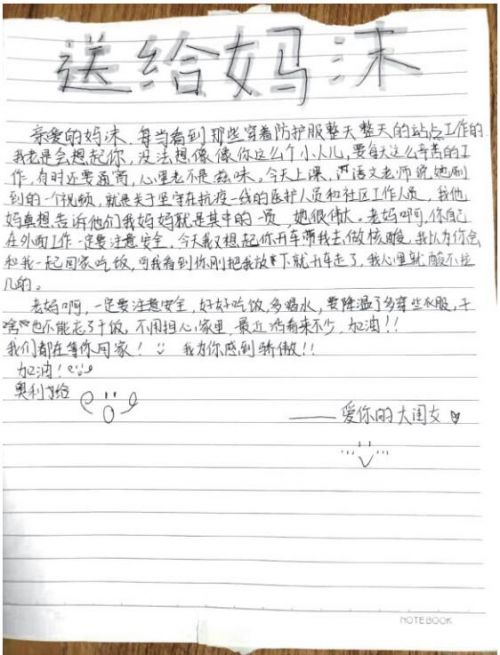 送给妈沫
亲爱的妈沫，每当看到那些穿着防护服整天整天的站点工作的
我老是会想起你，没法想像像你这么个小人儿，要每天这么辛苦的工
作，有时还要熬高，心里老不是滋味。今天上课，语文老师说她刷
到的一个视频，就是关于坚守在抗疫一线的医护人员和社区工作人员，我他
妈真想告诉他们我妈妈就是其中的一员，她很伟大。老妈啊，你自己
在外面工作一定要注意安全，今天我又想起你开车带我去做核酸，我以为你会
和我一起回家吃饭，可我看到你刚把我放下就开车走了，我心里就酸不拉
几的。
老妈啊，一定要注意安全，好好吃饭，多喝水，要降温了多穿些衣服，干
啥也不能忘了干饭，不用担心家里，最近活看来不少，加油！！
我们都在等你回家！我为你感到骄傲！！
加油！
奥利给
——爱你的大闺女
NOTEBOOK